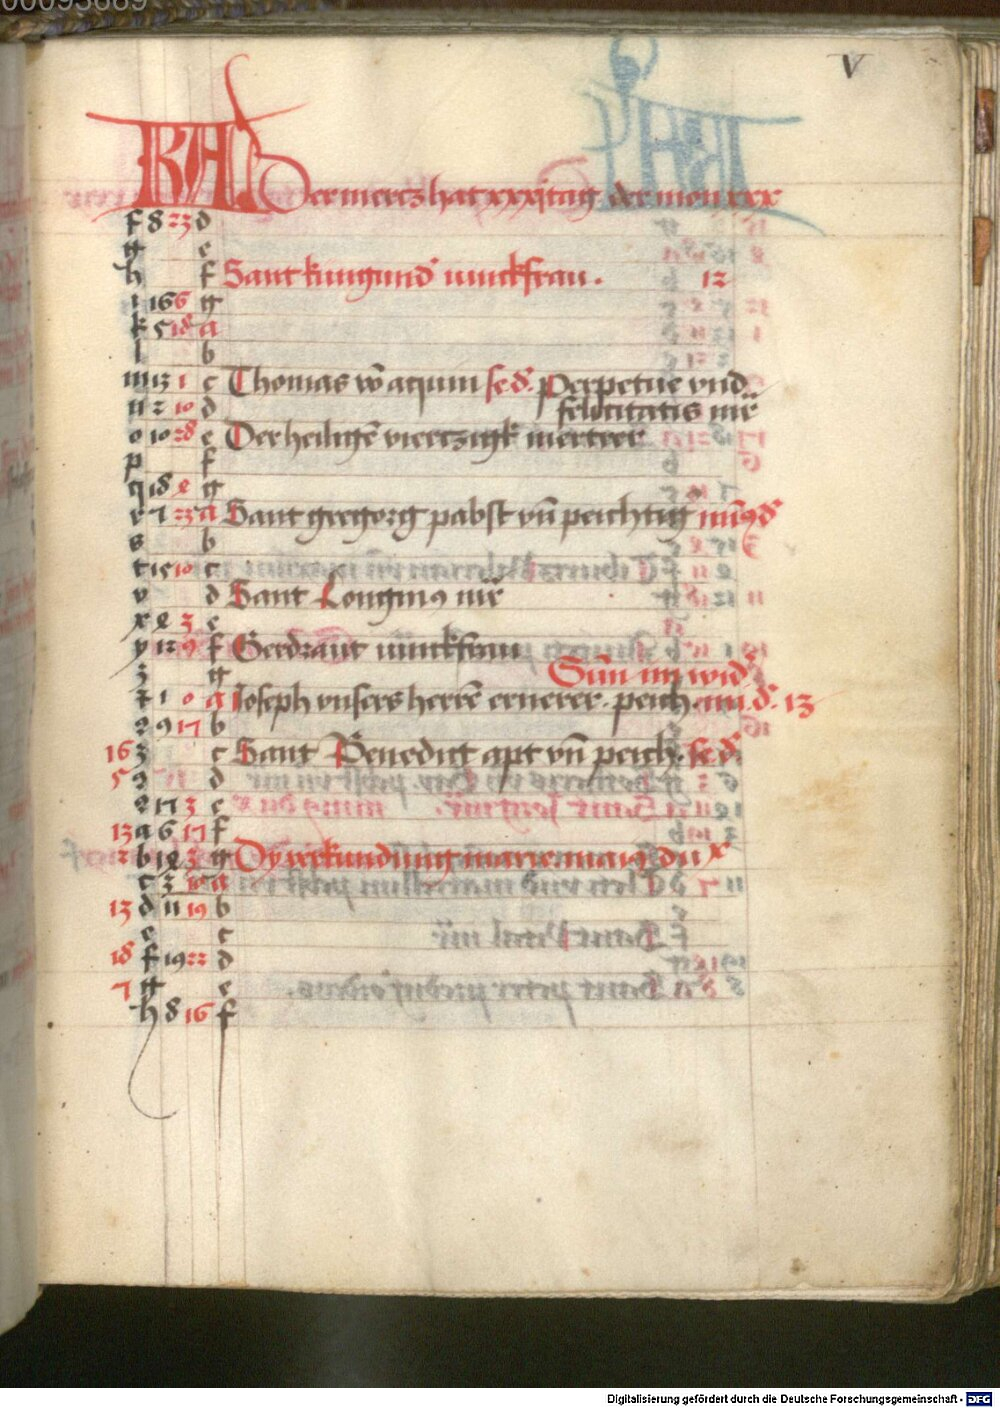 V
KA Der mercz hat xxxj tag der mon xxx
f 8 23 d
g e
h f Sant kungund iunckfrau. 12
i 16 6 g
k 5 18 a
l b
m 13 1 c Thomas võ aquin se d. Perpetue vnd
n 2 10 d felicitatis mr̃
o 10 28 e Der heiligẽ viertzigk mertrer
p f
q 18 2 g
r 7 23 a Sant gregorg pabst vñ peichtig
s b
t 15 10 c
v d Sant Longinꝯ mr̃
x 2 3 e
y 12 9 f Gerdraut iunckfrau
z g Sun im wid
1 0 a Joseph vnsers herrẽ ernerer. peich. 13
9 17 b
16 c Sant Benedict apt vñ peich. se d.
5 d
17 3 e
13 a 6 17 f
2 b g Dy verkundung marie
c 3 a
13 d 11 19 b
e c
18 f 19 22 d
7 g e
h 8 16 f
Digitalisierung gefördert durch die Deutsche Forschungsgemeinschaft - DFG